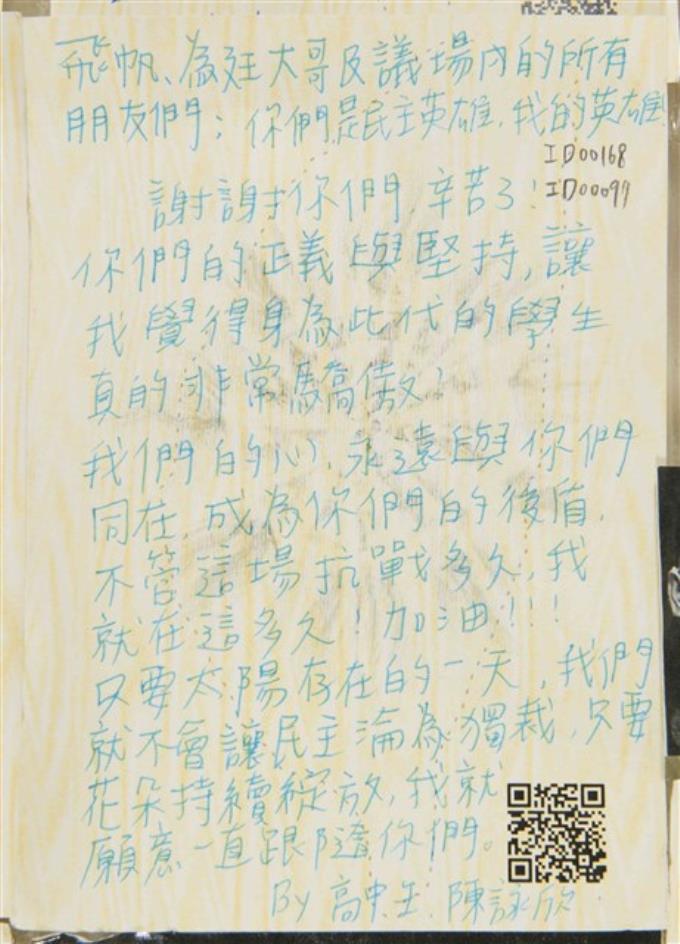 飛帆、為廷大哥及議場內的所有
朋友們：你們是民主英雄，我的英雄！
ID00168
ID00097
謝謝你們，辛苦了！
你們的正義與堅持，讓
我覺得身為此代的學生
真的非常驕傲！
我們的心，永遠與你們
同在，成為你們的後盾，
不管這場抗戰多久，我
就在這多久！加油！！！
只要太陽存在的一天，我們
就不會讓民主淪為獨裁，只要
花朵持續綻放，我就
願意一直跟隨你們。
By 高中生 陳詠欣